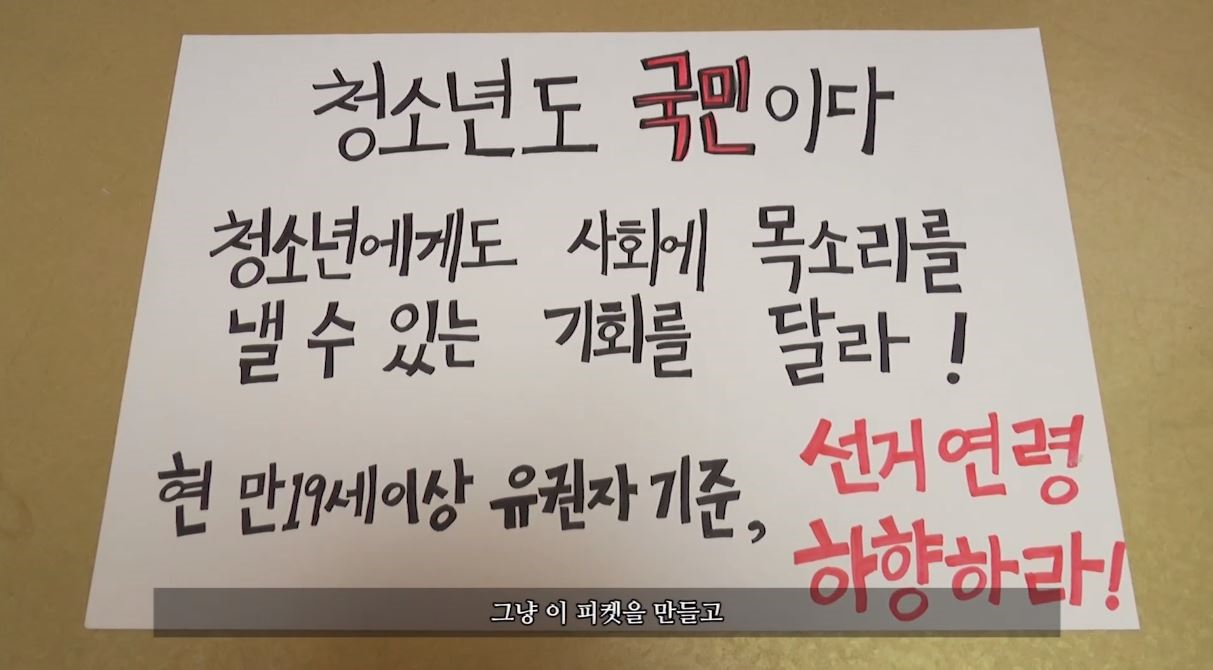 청소년도 국민이다
청소년에게도 사회에 목소리를
낼 수 있는 기회를 달라!
현 만19세이상 유권자 기준, 선거연령
하향하라!
그냥 이 피켓을 만들고